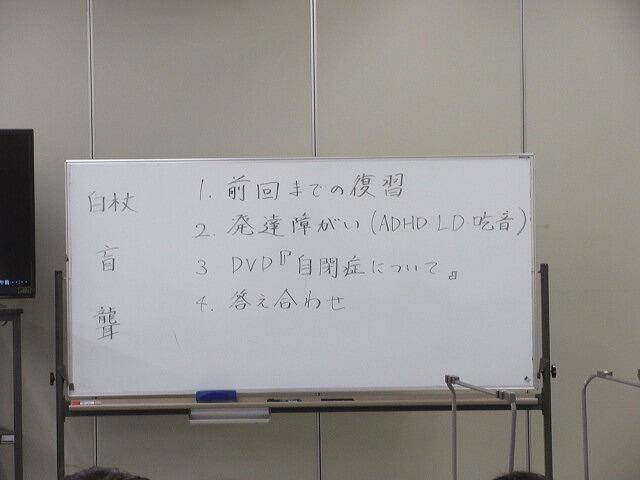 白杖
盲
聾
1. 前回までの復習
2. 発達障がい(ADHD LD 吃音)
3 DVD『自閉症について』
4. 答え合わせ